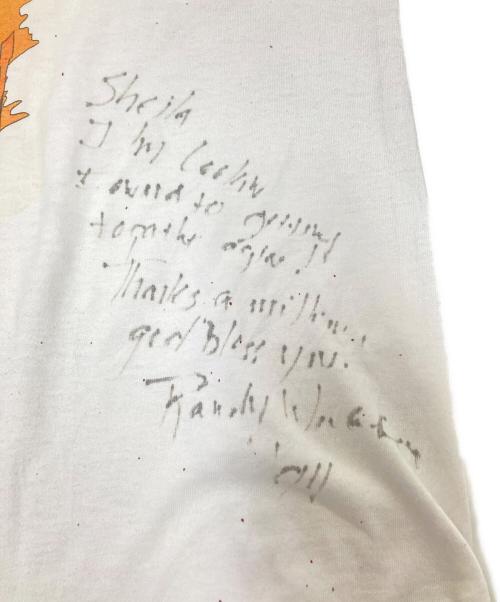 Sheila
I'm lookin
toward to getting
togather agian!!
Thanks a million!
god Bless you.
Randy